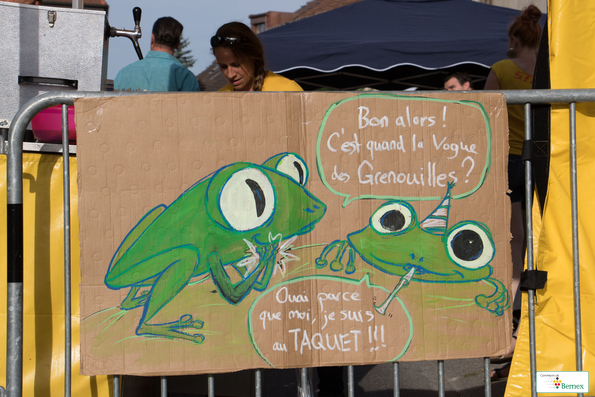 Bon alors !
C'est quand la Vogue
des Grenouilles ?
Ouai parce
que moi, je suis
au TAQUET !!!
Bernex